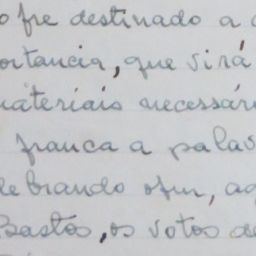 o fre destinado a
ortancia, que virá
materiais necessár
franca a palav
lebrando
Bastos, os votos de